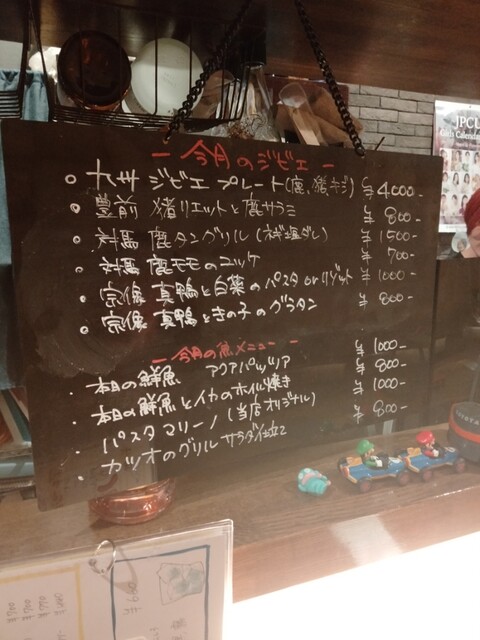 JPCL
Girls Calendar
ー今月のジビエー
○ 九州 ジビエ プレート(鹿、猪、キジ) ¥4000-
・豊前 猪リエットと鹿サラミ ¥800-
・対馬 鹿タングリル(ネギ塩ダレ) ¥1500-
・対馬 鹿モモのユッケ ¥700-
・宗像 真鴨と白菜のパスタ or リゾット ¥1000-
・宗像 真鴨ときの子のグラタン ¥800-
ー今月の魚メニューー
・本日の鮮魚 アクアパッツァ ¥1000-
・本日の鮮魚とイカのホイル焼き ¥800-
・パスタマリーノ(当店オリジナル) ¥1000-
・カツオのグリルサラダ仕立て ¥800-